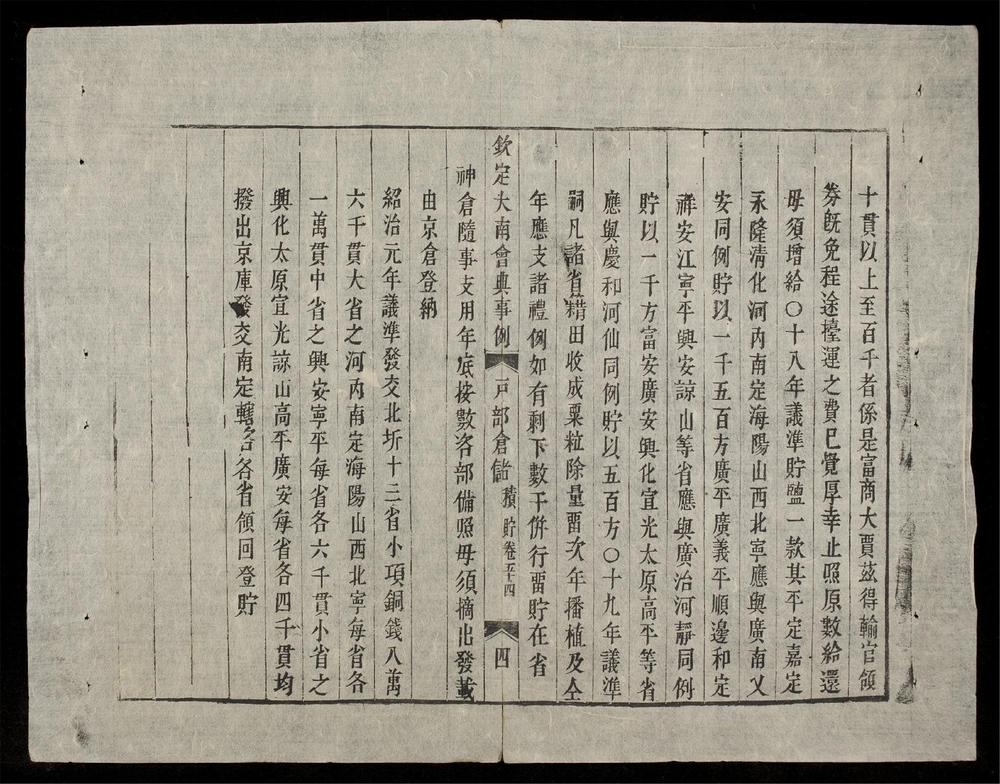 十貫以上至百千者係是富商大賈茲得輸官領
券旣免程途擡運之費已覺厚幸止照原數給還
毋須增給〇十八年議準貯鹽一款其平定嘉定
永隆清化河內南定海陽山西北寧應與廣南乂
安同例貯以一千五百方廣平廣義平順邊和定
祥安江寧平興安諒山等省應與廣治河靜同例
貯以一千方富安廣安興化宣光太原高平等省
應與慶和河仙同例貯以五百方〇十九年議準
嗣凡諸省耤田收成粟粒除量畱次年播植及仝
年應支諸禮例如有剩下數干併行畱貯在省
欽定大南會典事例 戸部倉儲 積貯卷五十四 四
神倉隨事支用年底按數咨部備照毋須摘出發載
由京倉登納
紹治元年議準發交北圻十三省小項銅錢八萬
六千貫大省之河內南定海陽山西北寧每省各
一萬貫中省之興安寧平每省各六千貫小省之
興化太原宣光諒山高平廣安每省各四千貫均
撥出京庫發交南定轄咨各省領回登貯